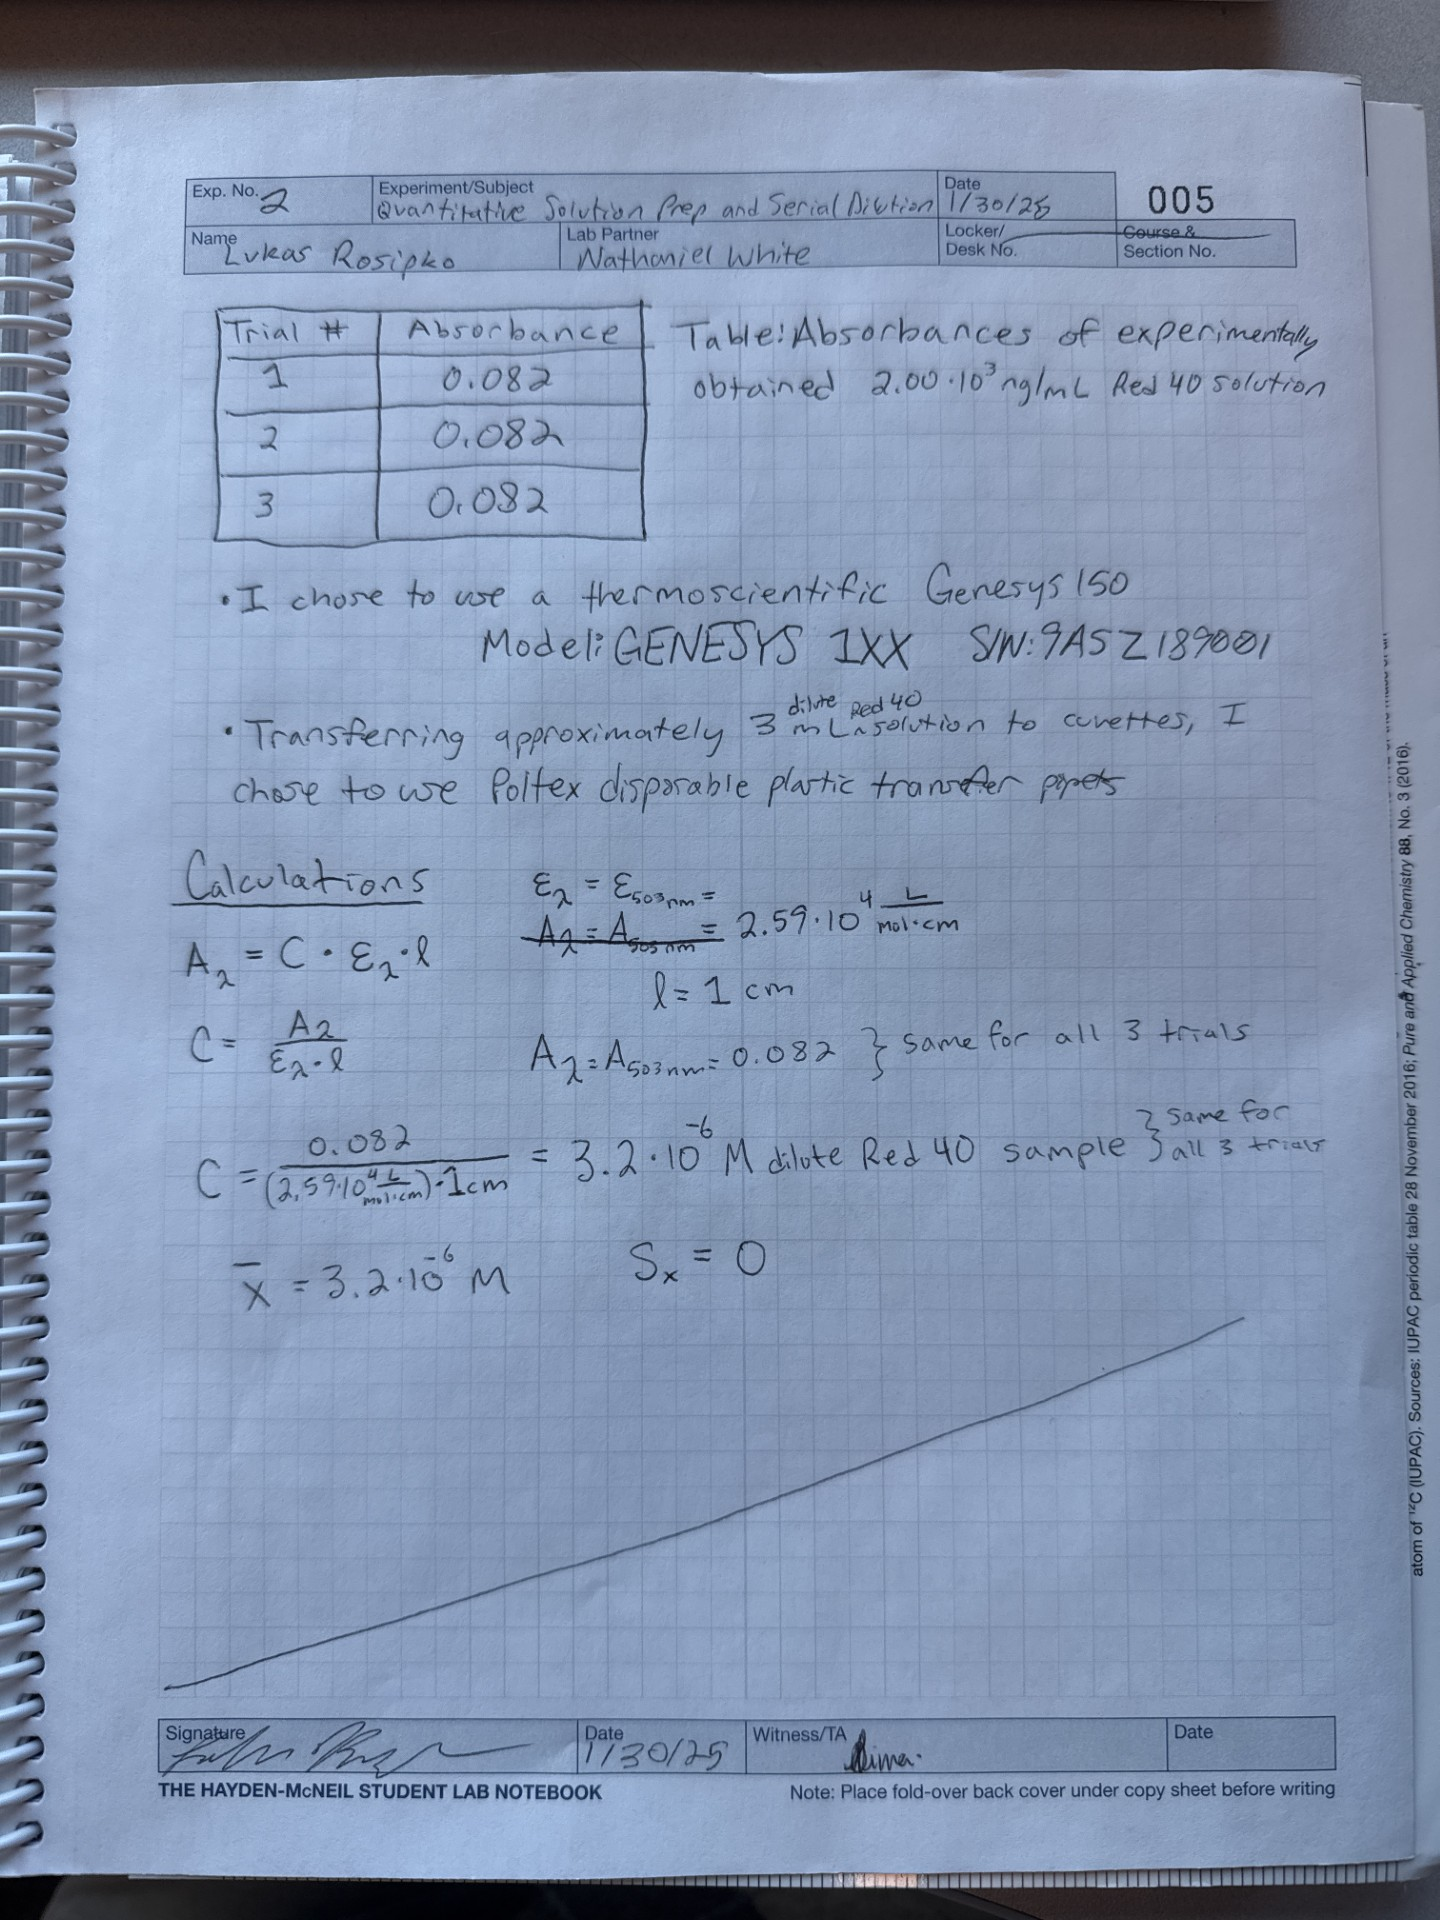 Exp. No. 2
Experiment/Subject
Quantitative Solution Prep and Serial Dilution
Date
1/30/25
005
Name
Lukas Rosipko
Lab Partner
Nathaniel White
Locker/
Desk No.
Course &
Section No.
Trial # Absorbance
1 0.082
2 0.082
3 0.082
Table: Absorbances of experimentally
obtained 2.00·10³ ng/mL Red 40 solution
• I chose to use a thermoscientific Genesys 150
Model: GENESYS 1XX S/N: 9A5Z189001
dilute Red 40
• Transferring approximately 3 mL ^ solution to cuvettes, I
chose to use Poltex disposable plastic transfer pipets
Calculations
ε_λ = ε_503nm =
A_λ = A_505nm = 2.59·10⁴ L/mol·cm
A_λ = C · ε_λ · l
l = 1 cm
C = A_λ/ε_λ·l
A_λ = A_503nm = 0.082 } same for all 3 trials
C = 0.082/(2.59·10⁴ L/mol·cm)·1cm = 3.2·10⁻⁶ M dilute Red 40 sample } same for all 3 trials
x̄ = 3.2·10⁻⁶ M S_x = 0
Signature
Date
1/30/25
Witness/TA
Date
THE HAYDEN-McNEIL STUDENT LAB NOTEBOOK
Note: Place fold-over back cover under copy sheet before writing
atom of ¹²C (IUPAC). Sources: IUPAC periodic table 28 November 2016; Pure and Applied Chemistry 88, No. 3 (2016).